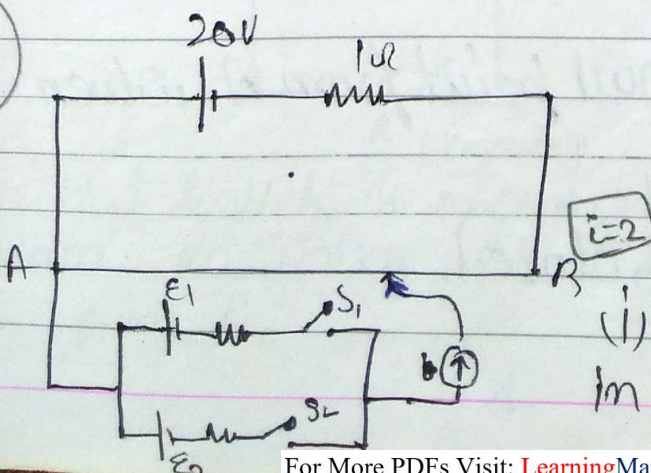 20V
1Ω
A
B
i=2
E1
S1
(i)
In
S2
E2
For More PDFs Visit: LearningMa